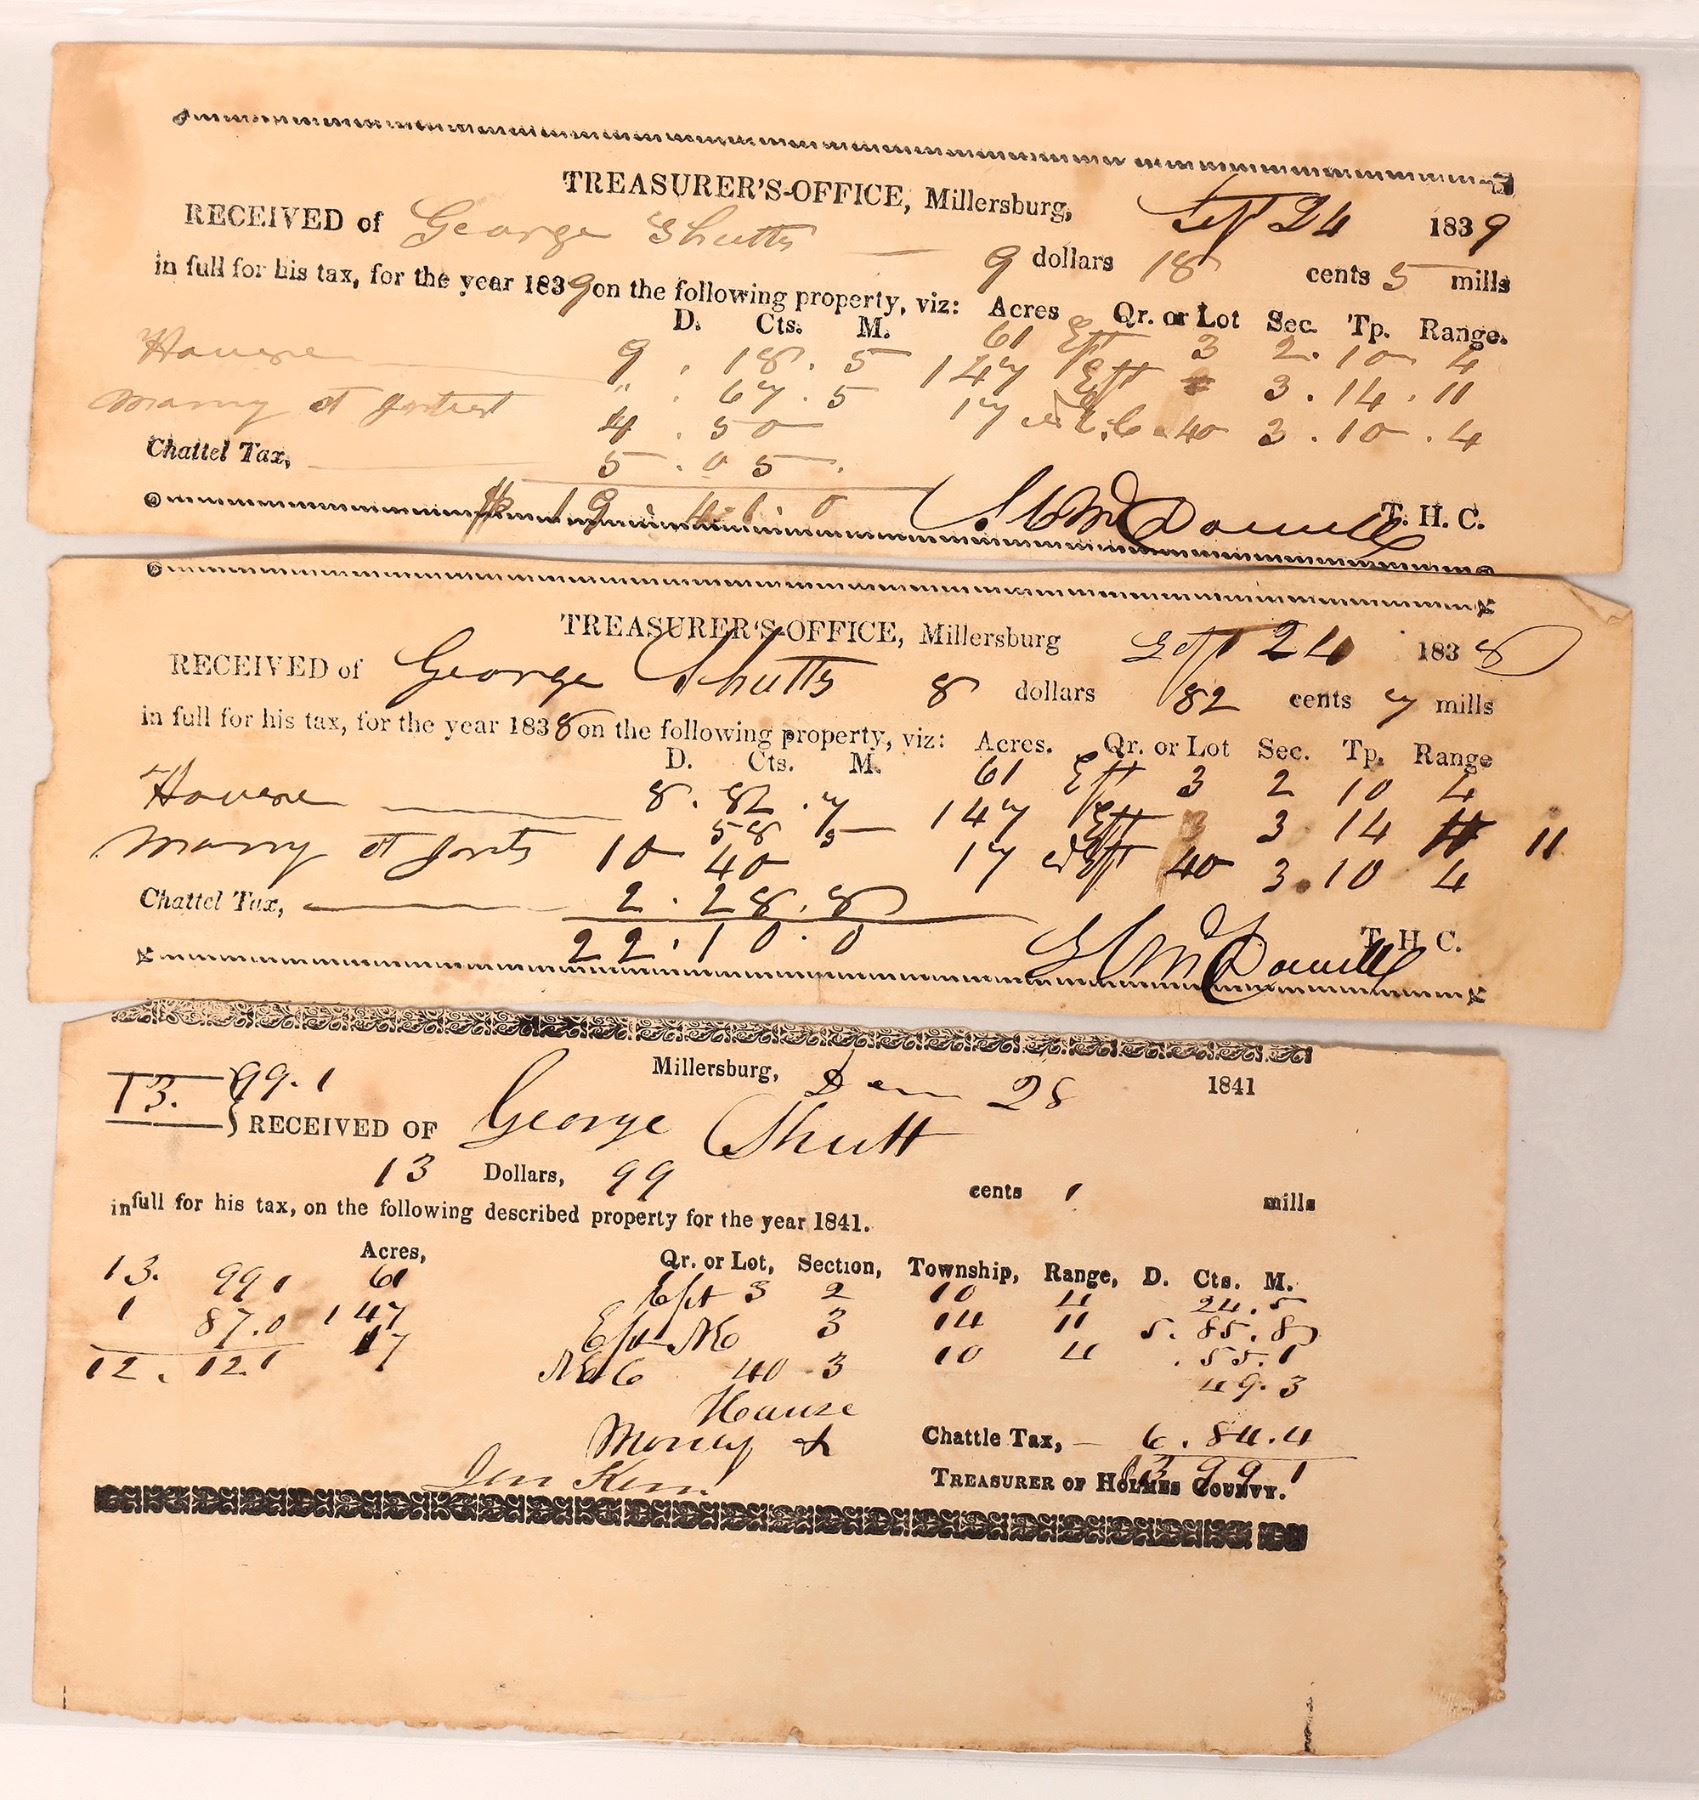 TREASURER'S-OFFICE, Millersburg, Sept 24 1839
RECEIVED of George Shutts 9 dollars 18 cents 5 mills
in full for his tax, for the year 1839 on the following property, viz: Acres Qr. or Lot Sec. Tp. Range.
D. Cts. M. 61 3 2. 10 4
House 9. 18. 5 147 3. 14. 11
". 67. 5 17 40 3. 10. 4
4. 50
Chattel Tax, 5. 05.
$ 19. 41. 0 T. H. C.
TREASURER'S-OFFICE, Millersburg Sept 24 1838
RECEIVED of George Shutts 8 dollars 82 cents 7 mills
in full for his tax, for the year 1838 on the following property, viz: Acres. Qr. or Lot Sec. Tp. Range
D. Cts. M. 61 3 2 10 4
House 8. 82. 7 147 3 3. 14 11
58 5 17 40 3. 10 4
10 40
Chattel Tax, 2. 28. 8
22. 10. 0 T. H. C.
13. 99. 1 Millersburg, Dec 28 1841
RECEIVED OF George Shutt
13 Dollars, 99 cents 1 mills
in full for his tax, on the following described property for the year 1841.
Acres, Qr. or Lot, Section, Township, Range, D. Cts. M.
13. 99 1 61 3 2 10 4 24. 5
1 87. 0 147 3 14 11 5. 85. 8
12. 12. 1 17 40 3 10 4 . 55. 1
49. 3
House
Money & Chattle Tax, 6. 84. 4
13 99 1
TREASURER OF HOLMES COUNTY.